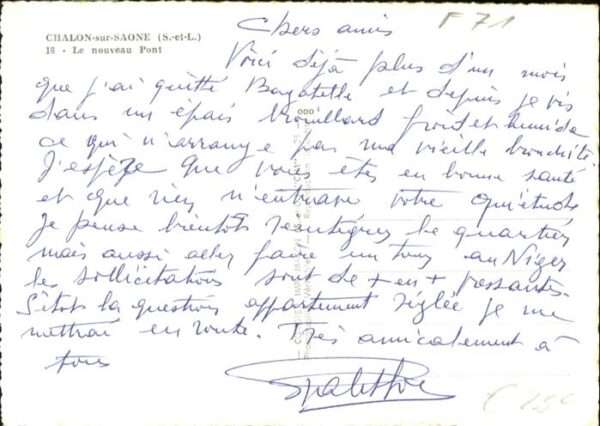 CHALON-sur-SAONE (S.-et-L.)
18 - Le nouveau Pont
F 71
Chers amis
Voici déjà plus d'un mois
que j'ai quitté Bagatelle et depuis je vis
dans un épais brouillard froid et humide
ce qui n'arrange pas ma vieille bronchite.
J'espère que vous êtes en bonne santé
et que rien n'entrave votre quiétude
Je pense bientôt réintégrer le quartier
mais aussi aller faire un tour au Niger
les sollicitations sont de + en + pressantes.
Sitôt la question appartement réglée je me
mettrai en route. Très amicalement à
tous